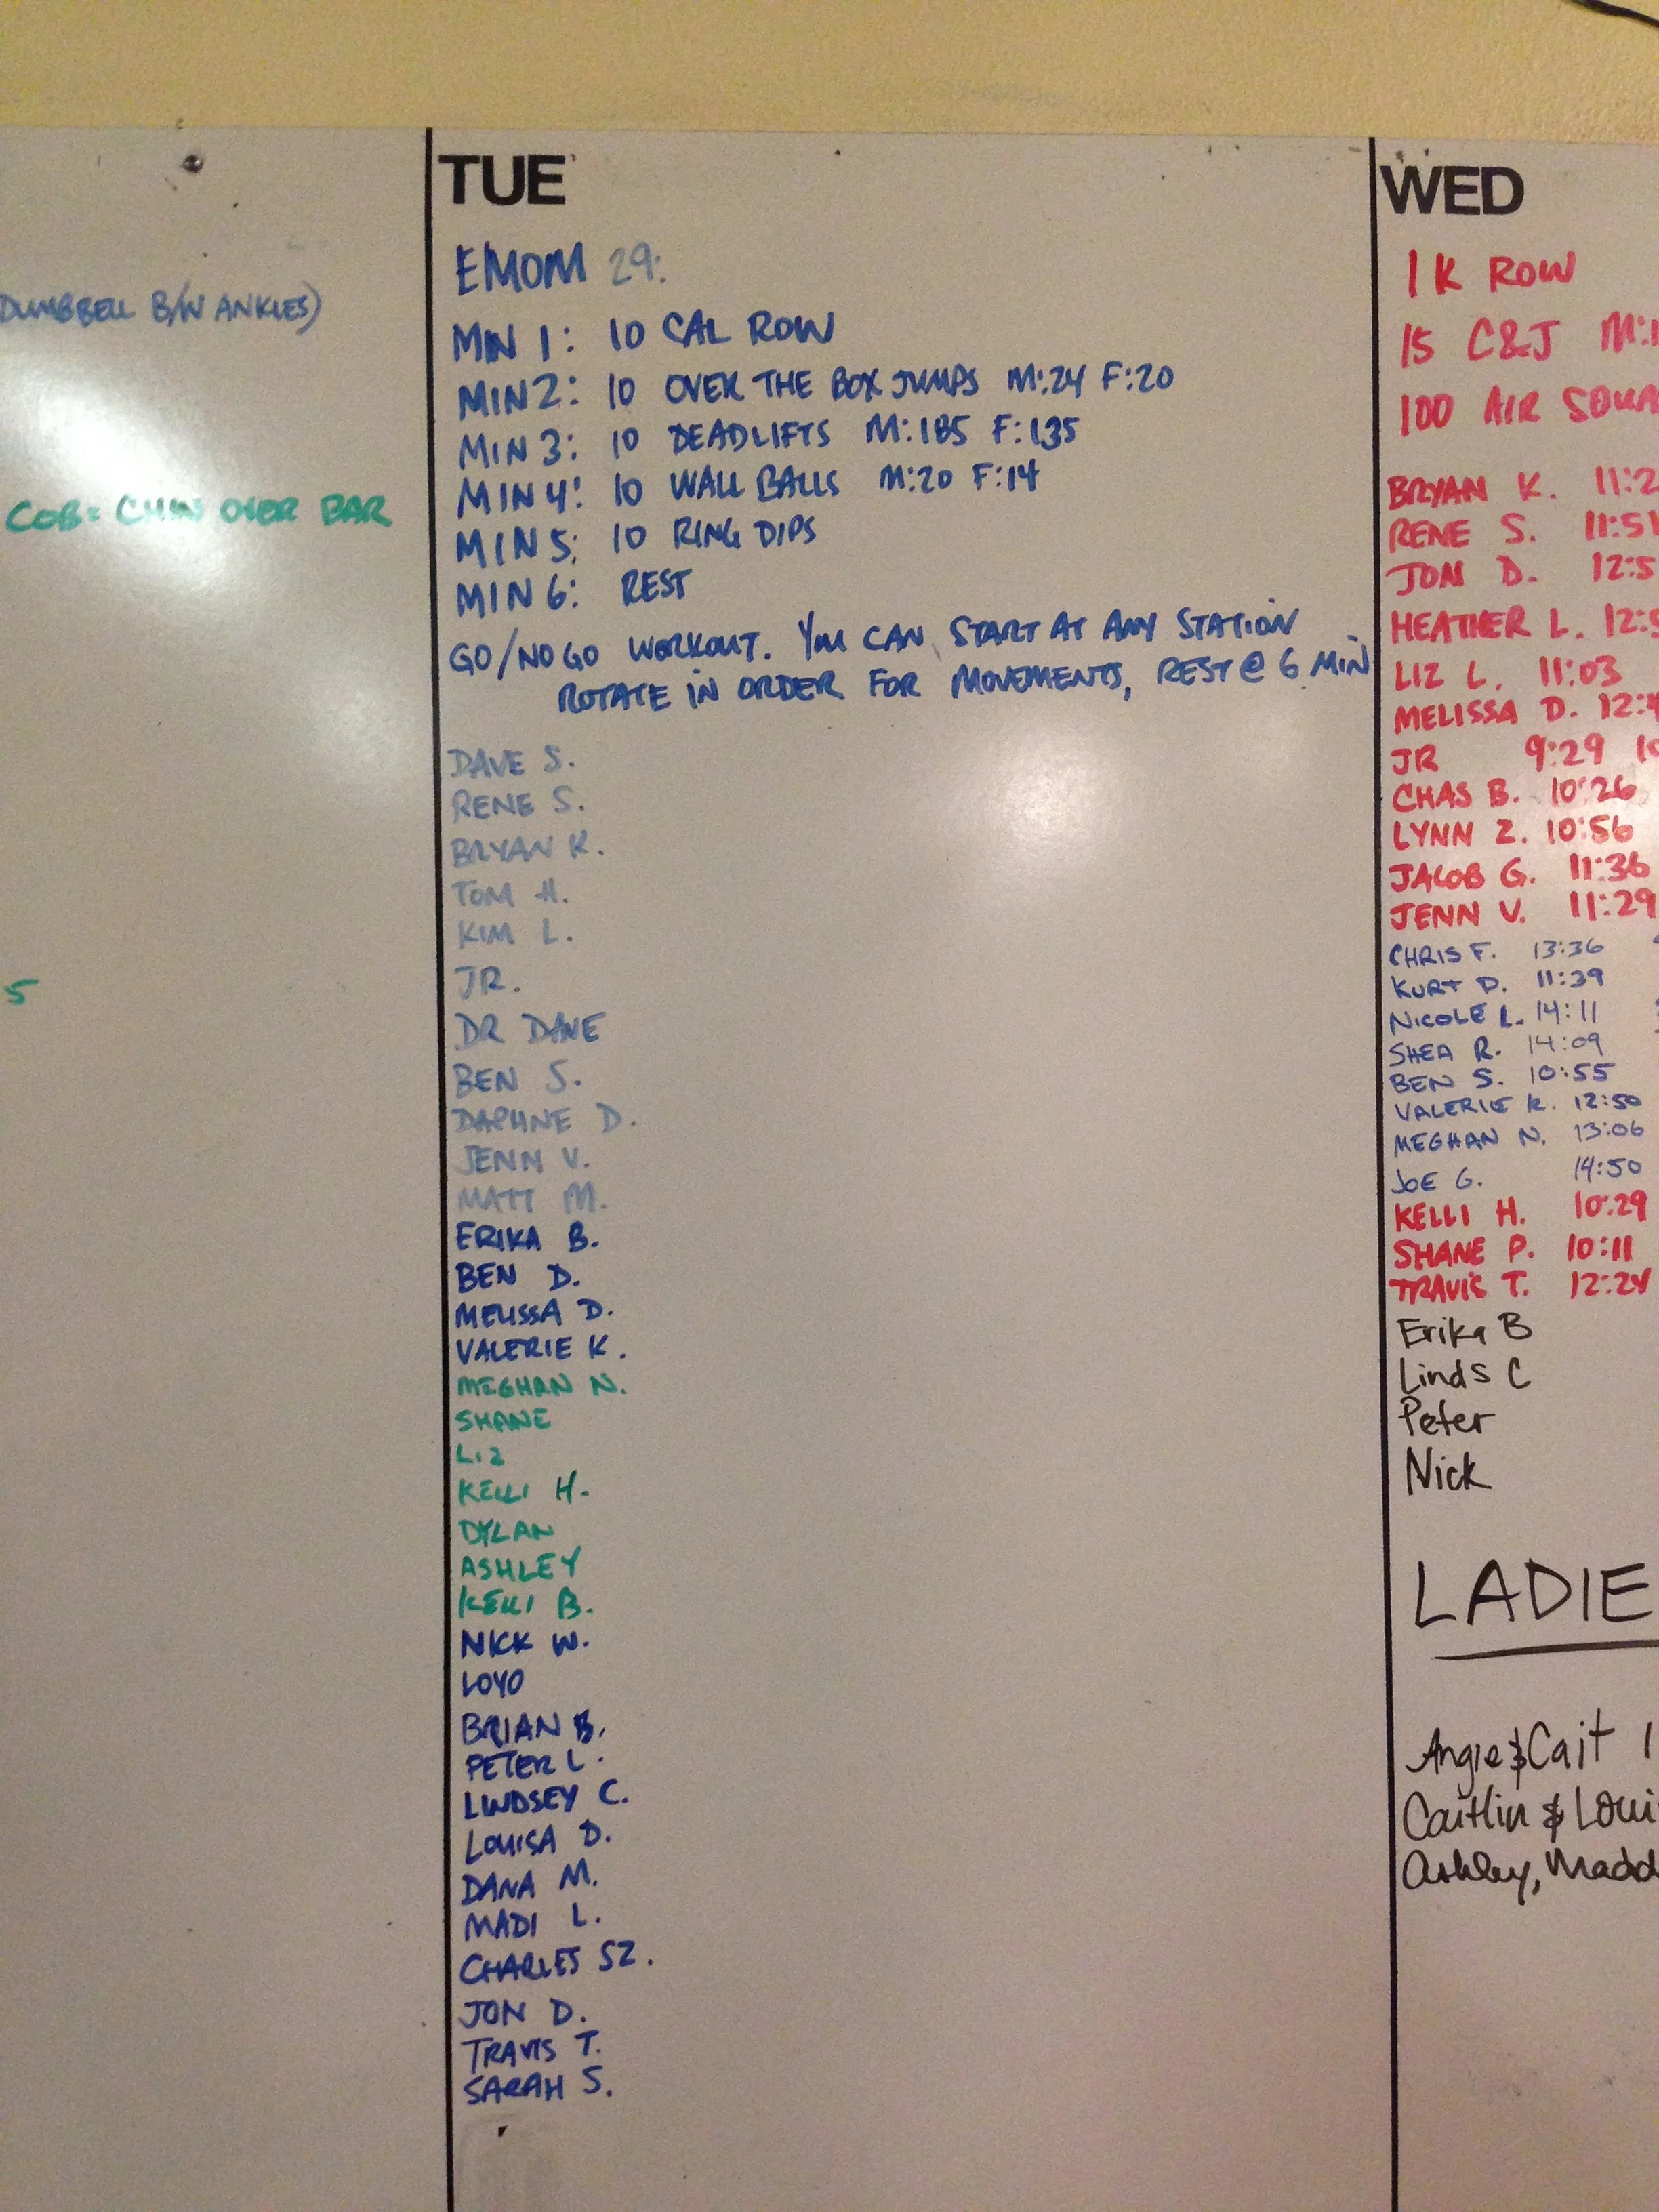 DUMBBELL B/W ANKLES)
COB= CHIN OVER BAR
5
TUE
EMOM 29:
MIN 1: 10 CAL ROW
MIN 2: 10 OVER THE BOX JUMPS M:24 F:20
MIN 3: 10 DEADLIFTS M:185 F:135
MIN 4: 10 WALL BALLS M:20 F:14
MIN 5: 10 RING DIPS
MIN 6: REST
GO/NO GO WORKOUT. YOU CAN START AT ANY STATION
ROTATE IN ORDER FOR MOVEMENTS, REST @ 6 MIN
DAVE S.
RENE S.
BRYAN K.
TOM H.
KIM L.
JR.
DR DAVE
BEN S.
DAPHNE D.
JENN V.
MATT M.
ERIKA B.
BEN D.
MELISSA D.
VALERIE K.
MEGHAN N.
SHANE
LIZ
KELLI H.
DYLAN
ASHLEY
KELLI B.
NICK W.
LOYO
BRIAN B.
PETER L.
LINDSEY C.
LOUISA D.
DANA M.
MADI L.
CHARLES SZ.
JON D.
TRAVIS T.
SARAH S.
WED
1 K ROW
15 C&J M:1
100 AIR SQUA
BRYAN K. 11:2
RENE S. 11:51
JON D. 12:5
HEATHER L. 12:5
LIZ L. 11:03
MELISSA D. 12:4
JR 9:29 10
CHAS B. 10:26
LYNN Z. 10:56
JACOB G. 11:36
JENN V. 11:29
CHRIS F. 13:36
KURT D. 11:39
NICOLE L. 14:11
SHEA R. 14:09
BEN S. 10:55
VALERIE K. 12:50
MEGHAN N. 13:06
JOE G. 14:50
KELLI H. 10:29
SHANE P. 10:11
TRAVIS T. 12:24
Erika B
Linds C
Peter
Nick
LADIE
Angie & Cait 1
Caitlin & Loui
Ashley, Madd